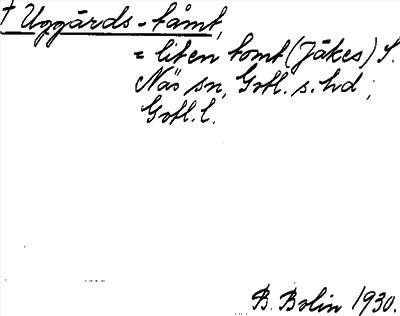 † Uggårds-tåmt,
= liten tomt (Jakes) S.
Näs sn, Gotl. s. hd;
Gotl. l.
B. Bolin 1930.